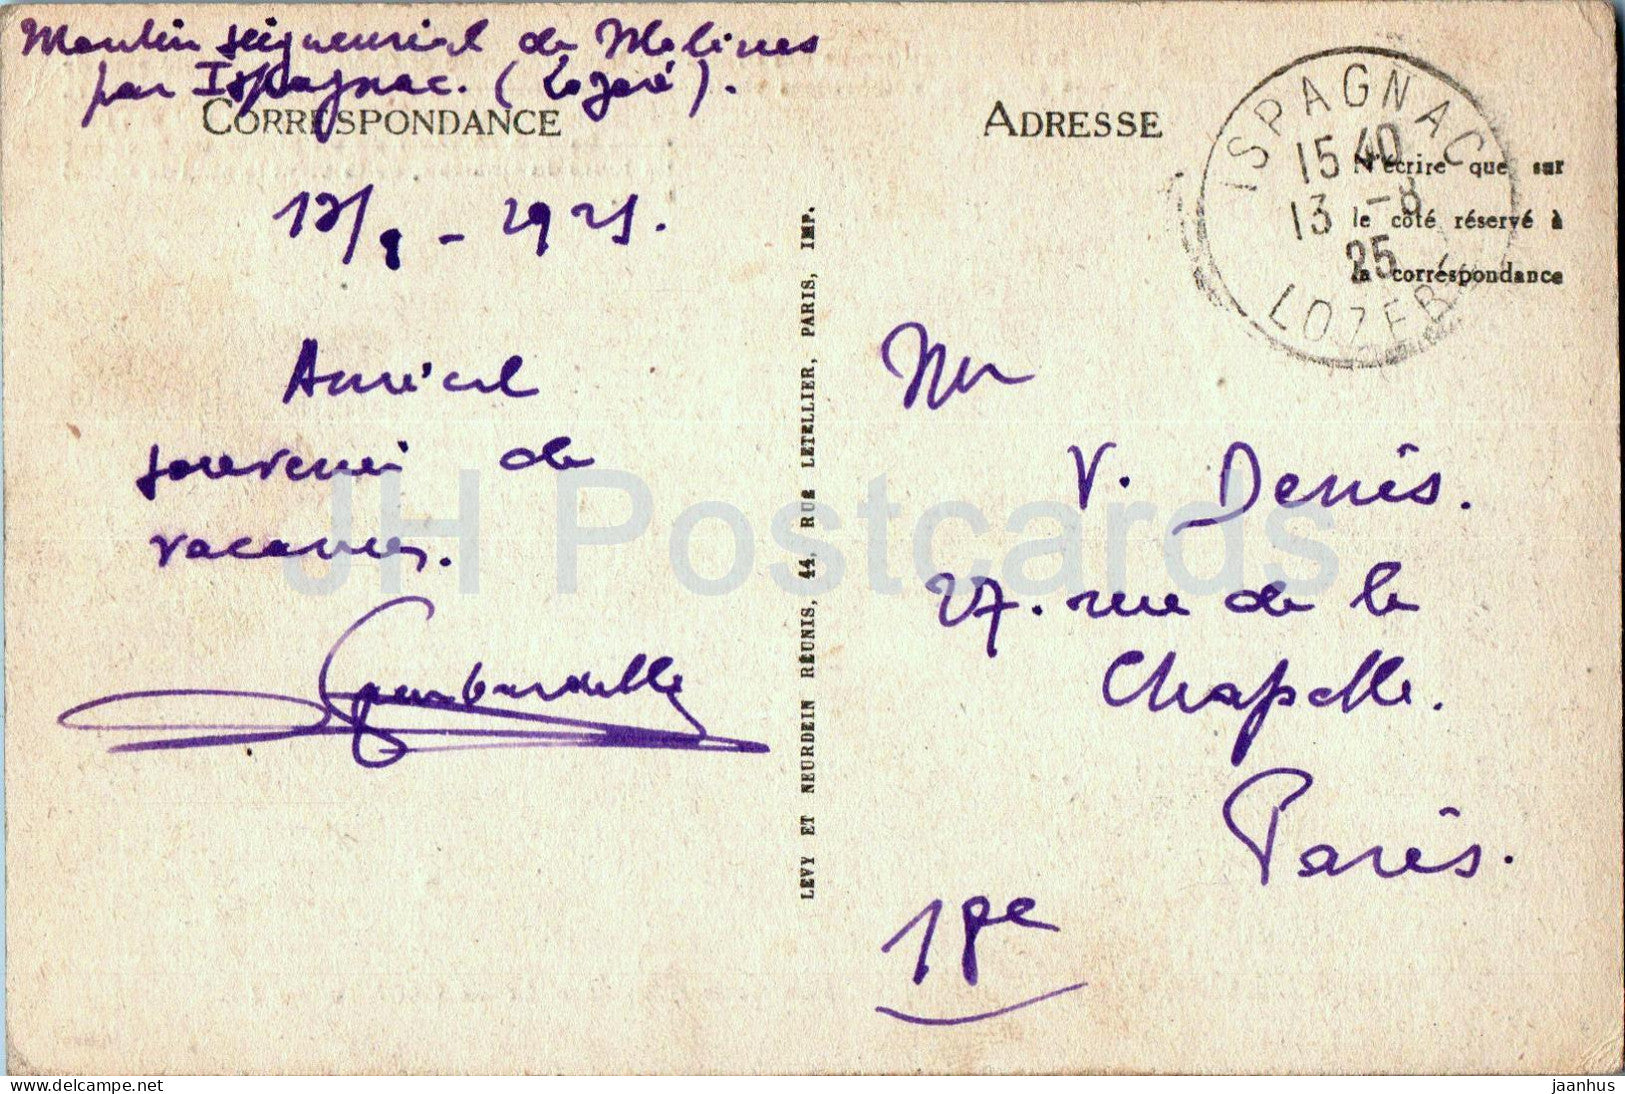 Moulin seigneurial de Molines
par Ispagnac. (Lozère).
CORRESPONDANCE
ADRESSE
ISPAGNAC
15 40
13 -8
25
LOZERE
N'écrire que sur
le côté réservé à
la correspondance
12/8 - 1925.
Amical
souvenir de
vacances.
Mr
V. Denis.
27. rue de la
Chapelle.
Paris.
18e
LÉVY ET NEURDEIN RÉUNIS, 44, RUE LETELLIER, PARIS, IMP.
JH Postcards
https://www.delcampe.net
jaanhus